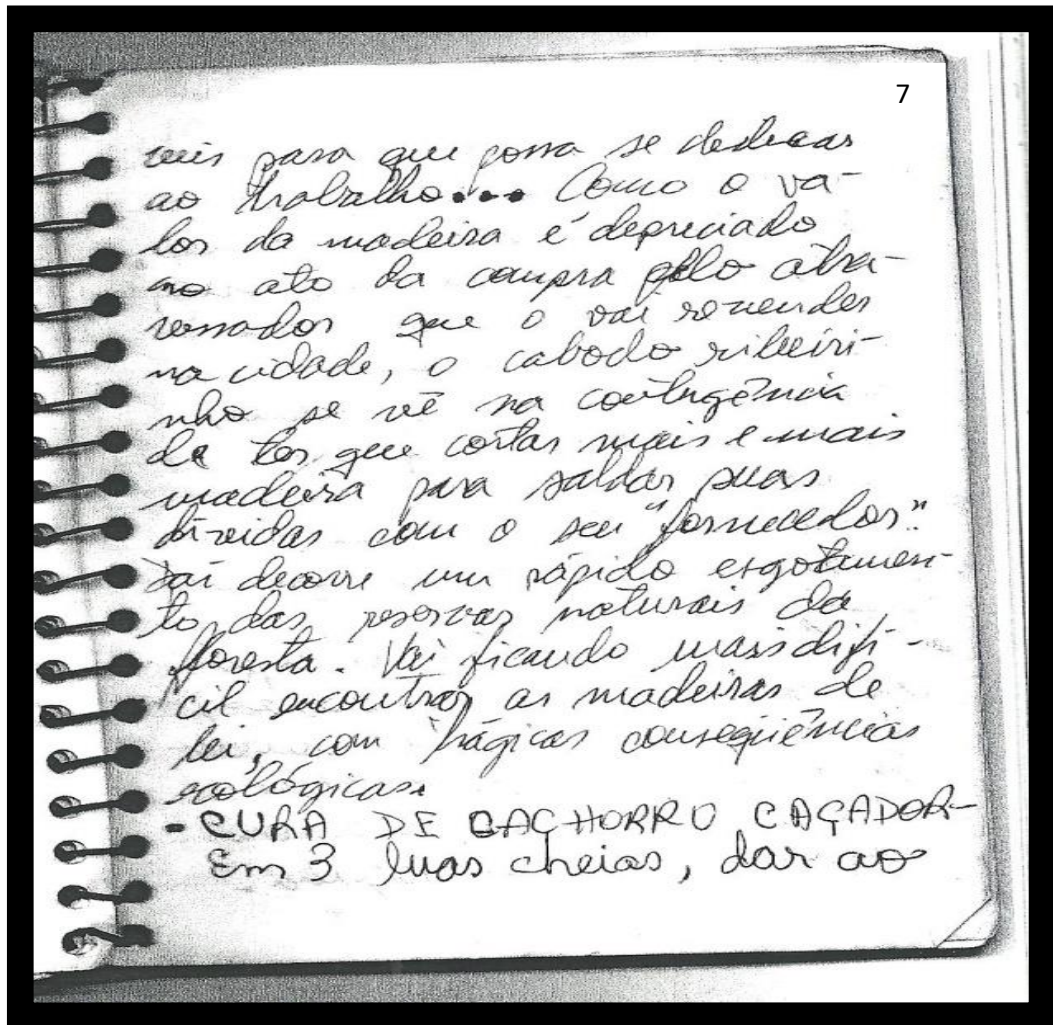 7
veis para que possa se dedicar
ao trabalho... Como o va-
lor da madeira é depreciado
no ato da compra pelo atra-
vessador que o vai revender
na cidade, o caboclo ribeiri-
nho se vê na contingência
de ter que cortar mais e mais
madeira para saldar suas
dívidas com o seu "fornecedor".
Daí decorre um rápido esgotamen-
to das reservas naturais da
floresta. Vai ficando mais difí-
cil encontrar as madeiras de
lei, com trágicas conseqüências
ecológicas.
- CURA DE CACHORRO CAÇADOR-
Em 3 luas cheias, dar ao